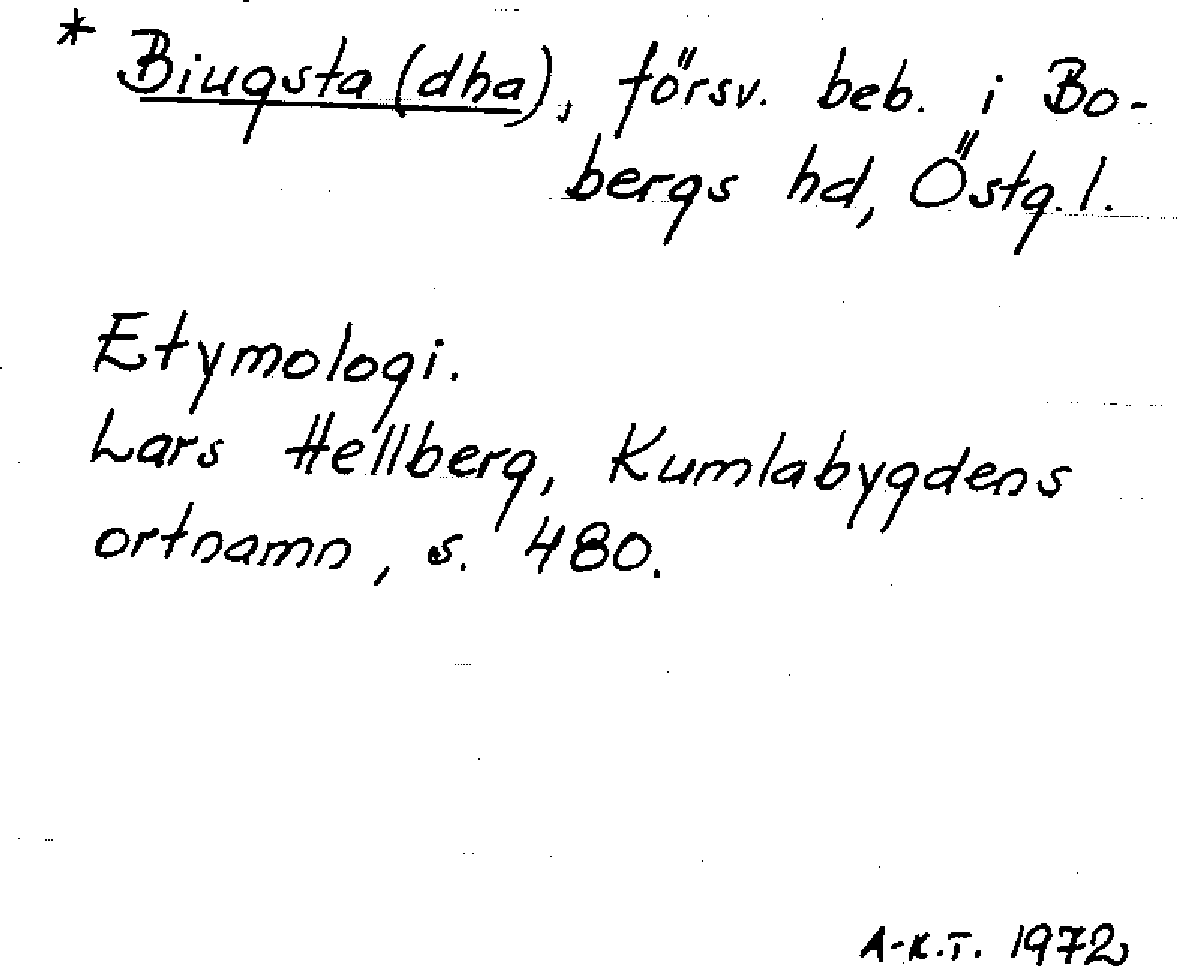 * Biugsta (dha), försv. beb. i Bo-
bergs hd, Östg. l.
Etymologi.
Lars Hellberg, Kumlabygdens
ortnamn, s. 480.
A-K.T. 1972